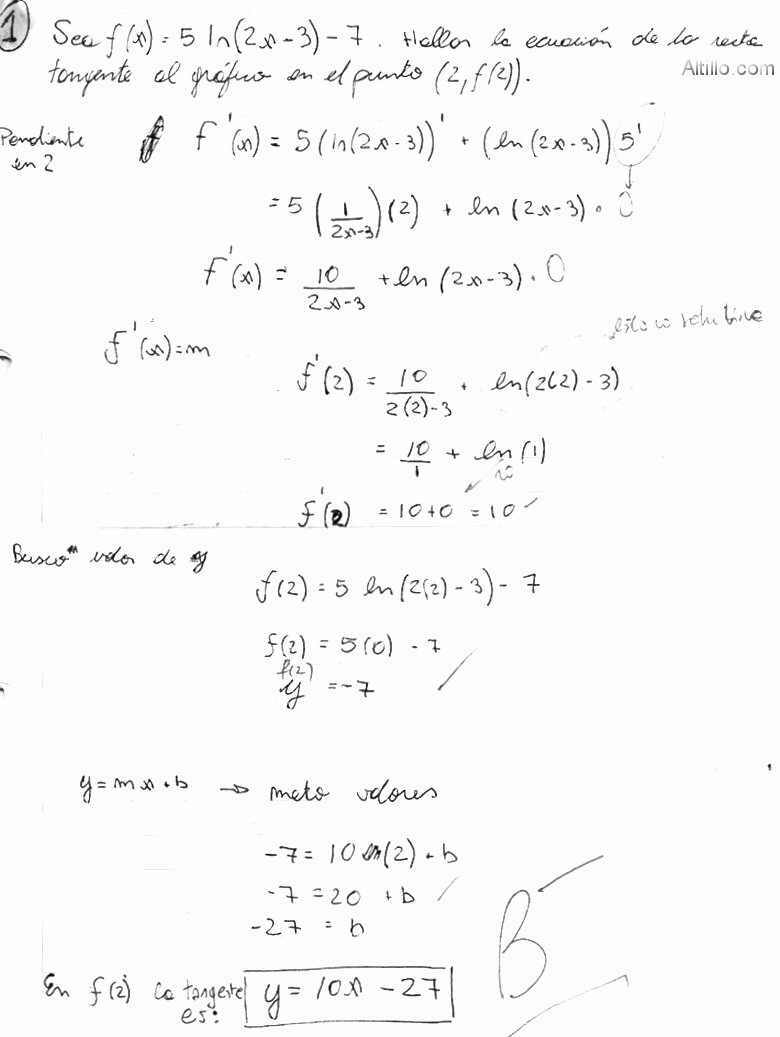 1 Sea f(x) = 5 ln(2x-3) - 7. Hallar la ecuación de la recta
tangente al gráfico en el punto (2, f(2)).
Altillo.com
Pendiente
en 2
f'(x) = 5(ln(2x-3))' + (ln(2x-3)) 5'
= 5 (1/(2x-3)) (2) + ln(2x-3) · 0
f'(x) = 10/(2x-3) + ln(2x-3) · 0
f'(x) = m
f'(2) = 10/(2(2)-3) + ln(2(2)-3)
= 10/1 + ln(1)
f'(2) = 10+0 = 10
Busco valor de y
f(2) = 5 ln(2(2)-3) - 7
f(2) = 5(0) - 7
f(2)
y = -7
y = mx + b → meto valores
-7 = 10 (2) + b
-7 = 20 + b
-27 = b
B
En f(2) la tangente
es: y = 10x - 27